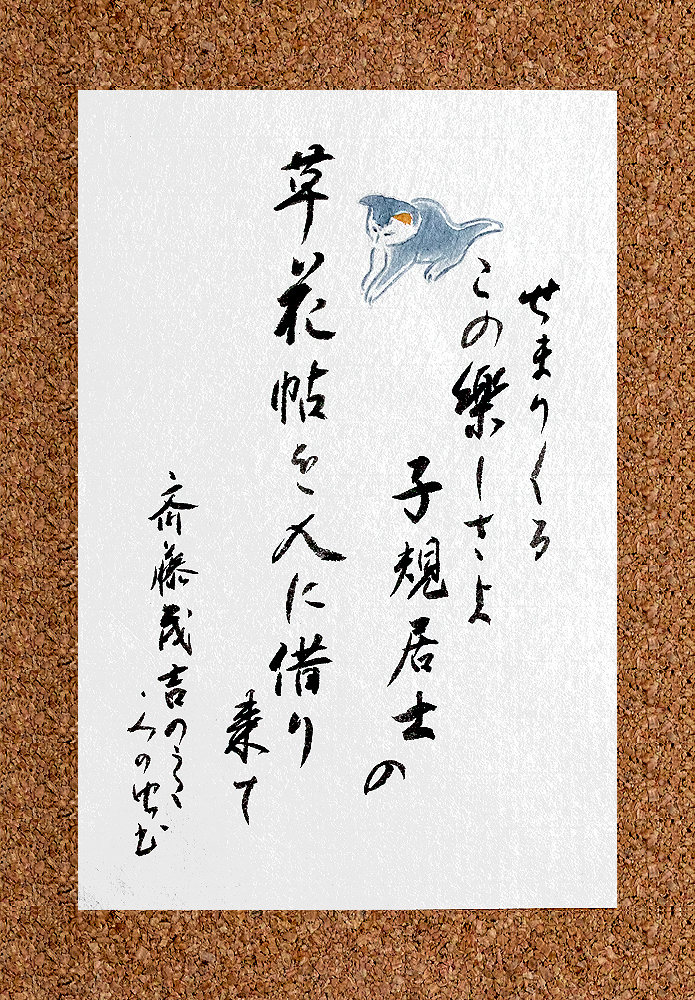 せまりくる
この樂しさよ
子規居士の
草花帖を人に借り
来て
斉藤茂吉のうた
人の